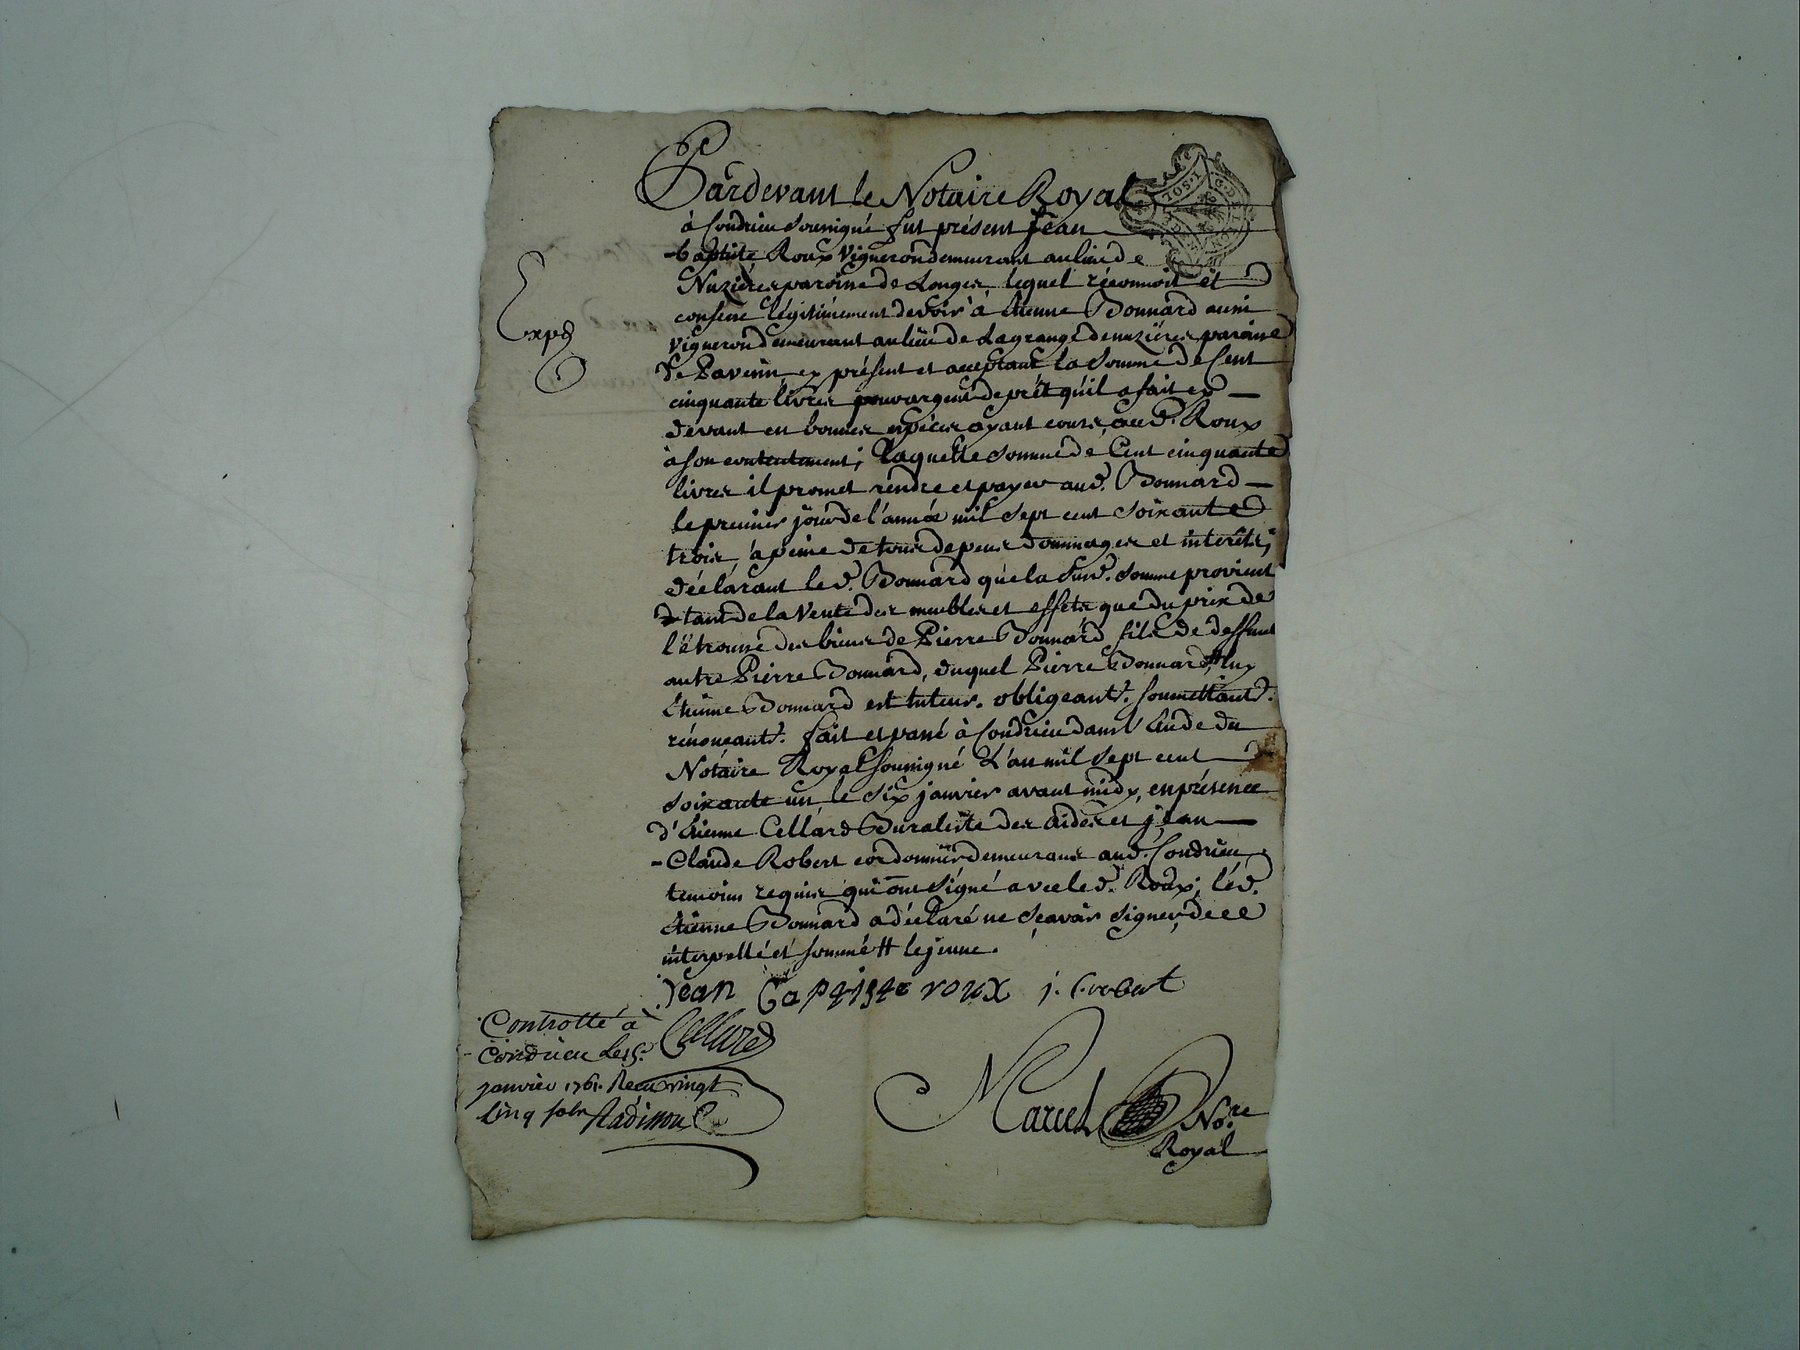 Pardevant le Notaire Royal
à Condrieu soussigné fut présent Jean
-baptiste Roux Vigneron demeurant au lieu de
Nuzieres paroisse de Longes, lequel réconnoit et
confesse légitimement devoir à Etienne Bonnard aussi
Vigneron demeurant au lieu de Lagrange de nuzieres paroisse
de Pavezin ex présent et acceptant la somme de Cent
cinquante livres pour argent de prêt qu'il a fait cy
devant en bonnes espèces ayant cours, aud. Roux
à son contentement; Laquelle somme de Cent cinquante
livres il promet rendre et payer aud. Bonnard
le premier jour de l'année mil sept cent soixante
trois, à peine de tous depens dommages et intérêts;
déclarant led. Bonnard que la susd. somme provient
tant de la Vente des meubles et effets que du prix de
l'étrousse des biens de Pierre Bonnard fils de deffunt
autre Pierre Bonnard, duquel Pierre Bonnard # luy
Etienne Bonnard est tuteur. obligeant. soumettant.
rénonçant. fait et passé à Condrieu dans l'Etude du
Notaire Royal soussigné L'an mil sept cent
soixante un, le six janvier avant midy, en présence
d'Etienne Cellard Buraliste des Aides et jean
-Claude Robert cordonnier demeurans aud. Condrieu
temoins requis qui ont signé avec led. Roux; led.
Etienne Bonnard a déclaré ne sçavoir signer, de ce
interpellé et sommé # le jeune.
Jean baptiste roux j. C. robert
Cellard
Expd
Controllé à
Condrieu le 15.
janvier 1761. Reçu vingt
Cinq sols
Marcel No.re
Royal